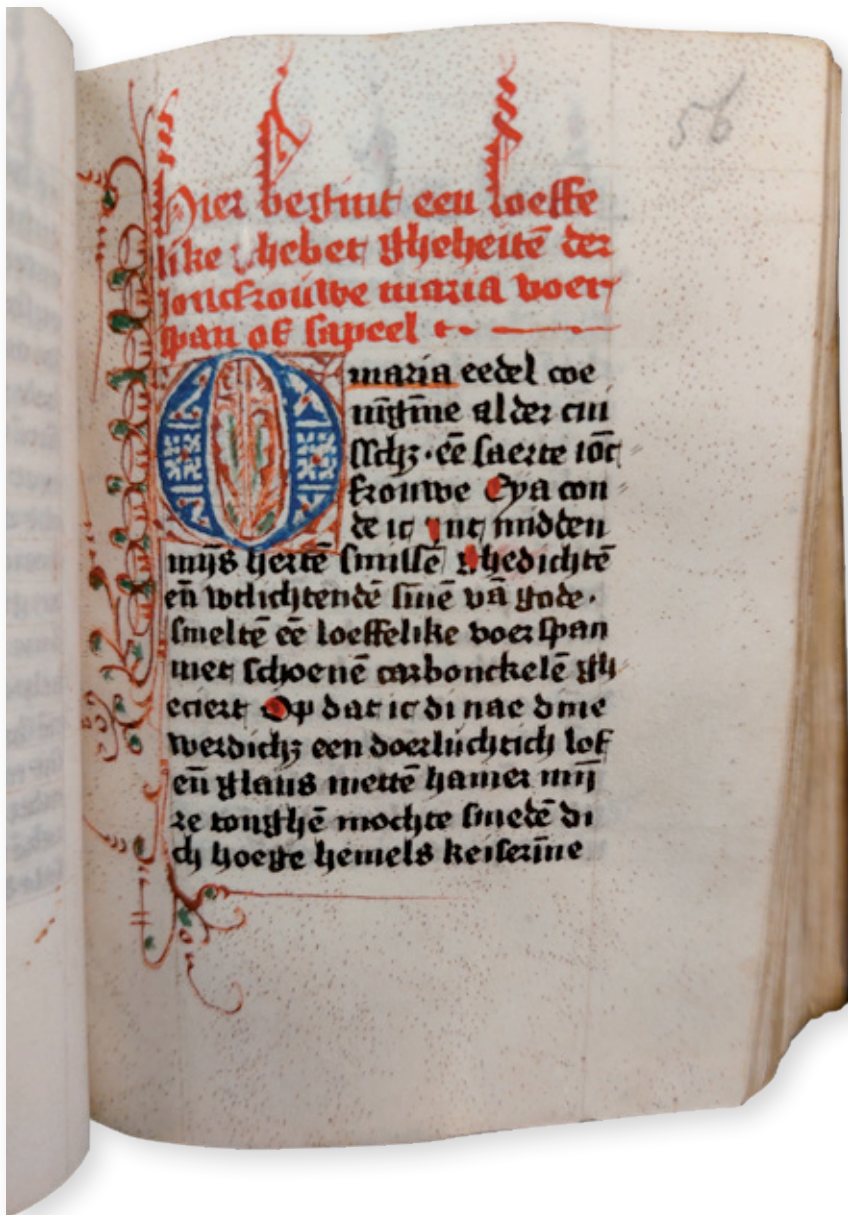 56
Hier beghint een loeffe
like ghebet gheheitē der
ioncfrouwe maria voer
span of sapeel
O maria eedel coe
nighīne al der cui
sscħ · eē saerte iōc
frouwe Eya con
de ic int midden
mijs hertē smissē ghedichtē
eñ wtlichtendē sinē vā gode ·
smeltē eē loeffelike voerspan
met schoenē carbonckelē gh
eciert Op dat ic di nae dine
werdichȝ een doerluchtich lof
eñ glans mettē hamer mij
re tonghē mochte smedē di
ch hoege hemels keiserīne